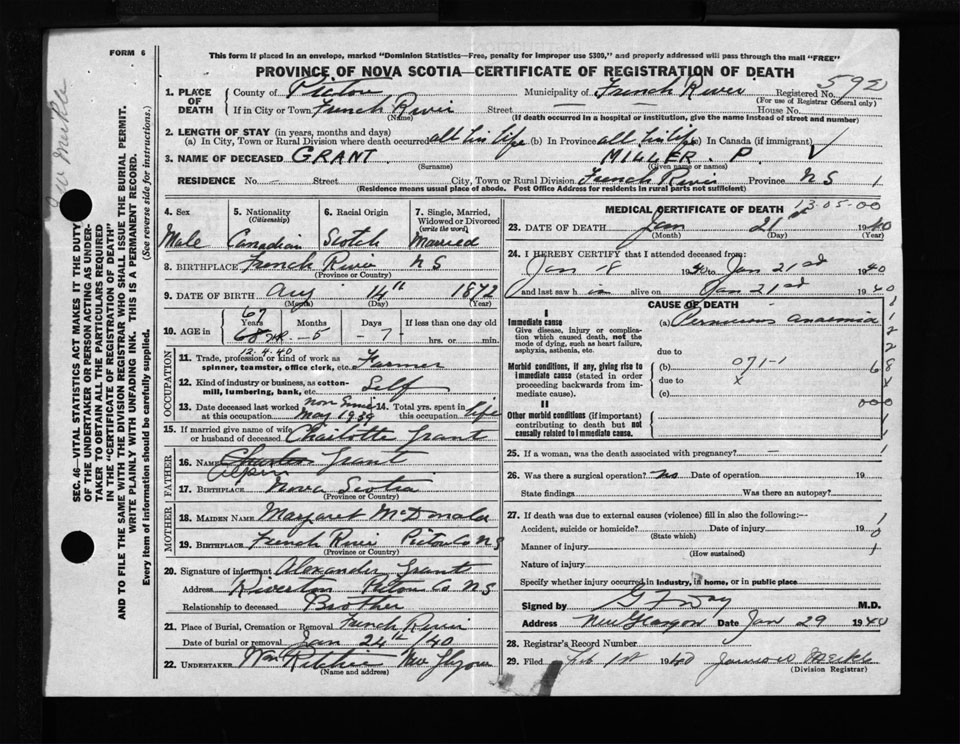 FORM 6
This form if placed in an envelope, marked "Dominion Statistics—Free, penalty for improper use $300," and properly addressed will pass through the mail "FREE"
PROVINCE OF NOVA SCOTIA—CERTIFICATE OF REGISTRATION OF DEATH
592
1. PLACE OF DEATH County of Pictou Municipality of French River Registered No.
(For use of Registrar General only)
If in City or Town French River Street — House No. —
(Name) (If death occurred in a hospital or institution, give the name instead of street and number)
2. LENGTH OF STAY (in years, months and days)
(a) In City, Town or Rural Division where death occurred all his life (b) In Province all his life (c) In Canada (if immigrant)
3. NAME OF DECEASED GRANT MILLER. P.
(Surname) (Given name or names)
RESIDENCE No. — Street City, Town or Rural Division French River Province N S 1
(Residence means usual place of abode. Post Office Address for residents in rural parts not sufficient)
4. Sex Male
5. Nationality (Citizenship) Canadian
6. Racial Origin Scotch
7. Single, Married, Widowed or Divorced (write the word) Married
8. BIRTHPLACE French River N S
(Province or Country)
9. DATE OF BIRTH Aug 14th 1872
(Month) (Day) (Year)
67
10. AGE in Years 68 Months 5 Days 7 If less than one day old
hrs. or min.
12.4.40
OCCUPATION
11. Trade, profession or kind of work as spinner, teamster, office clerk, etc. Farmer
12. Kind of industry or business, as cotton-mill, lumbering, bank, etc. Self
13. Date deceased last worked at this occupation May 1939
14. Total yrs. spent in this occupation life
15. If married give name of wife or husband of deceased Charlotte Grant
FATHER
16. NAME Charles Grant
17. BIRTHPLACE Nova Scotia
(Province or Country)
MOTHER
18. MAIDEN NAME Margaret McDonald
19. BIRTHPLACE French River Pictou Co N S
(Province or Country)
20. Signature of informant Alexander Grant
Address Riverton Pictou Co N S
Relationship to deceased Brother
21. Place of Burial, Cremation or Removal French River
Date of burial or removal Jan 24th /40
22. UNDERTAKER Ritchie New Glasgow
(Name and address)
MEDICAL CERTIFICATE OF DEATH 13-05-00
23. DATE OF DEATH Jan 21st 1940
(Month) (Day) (Year)
24. I HEREBY CERTIFY that I attended deceased from:
Jan 18 1940 to Jan 21st 1940
and last saw him alive on Jan 21st 1940
CAUSE OF DEATH
I
Immediate cause (a) Pernicious anaemia
Give disease, injury or complication which caused death, not the mode of dying, such as heart failure, asphyxia, asthenia, etc.
due to
Morbid conditions, if any, giving rise to immediate cause (stated in order proceeding backwards from immediate cause).
(b) 071-1
due to x
(c)
II
Other morbid conditions (if important) contributing to death but not causally related to immediate cause.
1
2
2
68
x
000
1
25. If a woman, was the death associated with pregnancy? —
26. Was there a surgical operation? No Date of operation 19
State findings Was there an autopsy?
27. If death was due to external causes (violence) fill in also the following:—
Accident, suicide or homicide? Date of injury 19
(State which)
Manner of injury
(How sustained)
Nature of injury
Specify whether injury occurred in industry, in home, or in public place
1
0
1
Signed by G F Day M.D.
Address New Glasgow Date Jan 29 1940
28. Registrar's Record Number
29. Filed Feb 1st 1940 James W Meikle
(Division Registrar)
SEC. 46—VITAL STATISTICS ACT MAKES IT THE DUTY
OF THE UNDERTAKER OR PERSON ACTING AS UNDER-
TAKER TO OBTAIN ALL THE PARTICULARS REQUIRED
IN THE "CERTIFICATE OF REGISTRATION OF DEATH"
AND TO FILE THE SAME WITH THE DIVISION REGISTRAR WHO SHALL ISSUE THE BURIAL PERMIT.
WRITE PLAINLY WITH UNFADING INK. THIS IS A PERMANENT RECORD.
Every item of information should be carefully supplied. (See reverse side for instructions.)
Meikle